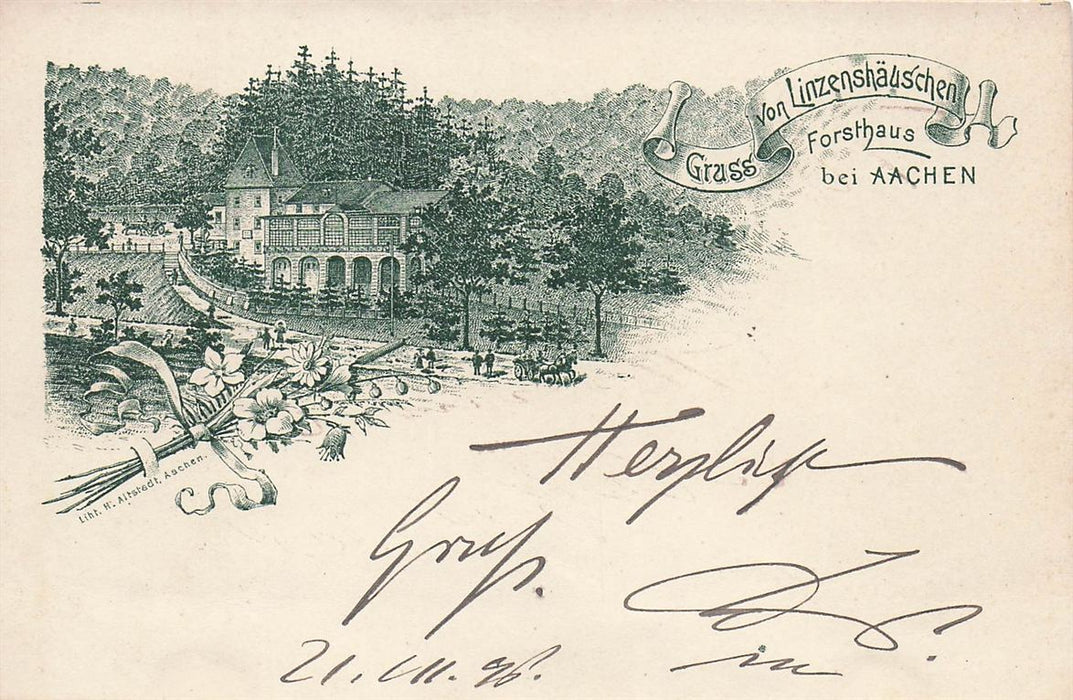 Gruss von Linzenshäus'chen
Forsthaus
bei AACHEN
Liht. H. Altstedt, Aachen.
Herzlich
Gruß.